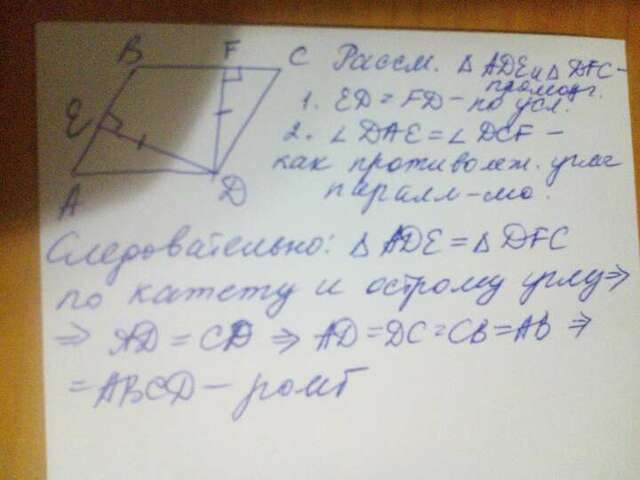 B F C
E
A D
Рассм. △ ADE и △ DFC -
прямоуг.
1. ED = FD - по усл.
2. ∠ DAE = ∠ DCF -
как противолеж. углы
паралл-ма.
Следовательно: △ ADE = △ DFC
по катету и острому углу ⇒
⇒ AD = CD ⇒ AD = DC = CB = AB ⇒
= ABCD - ромб